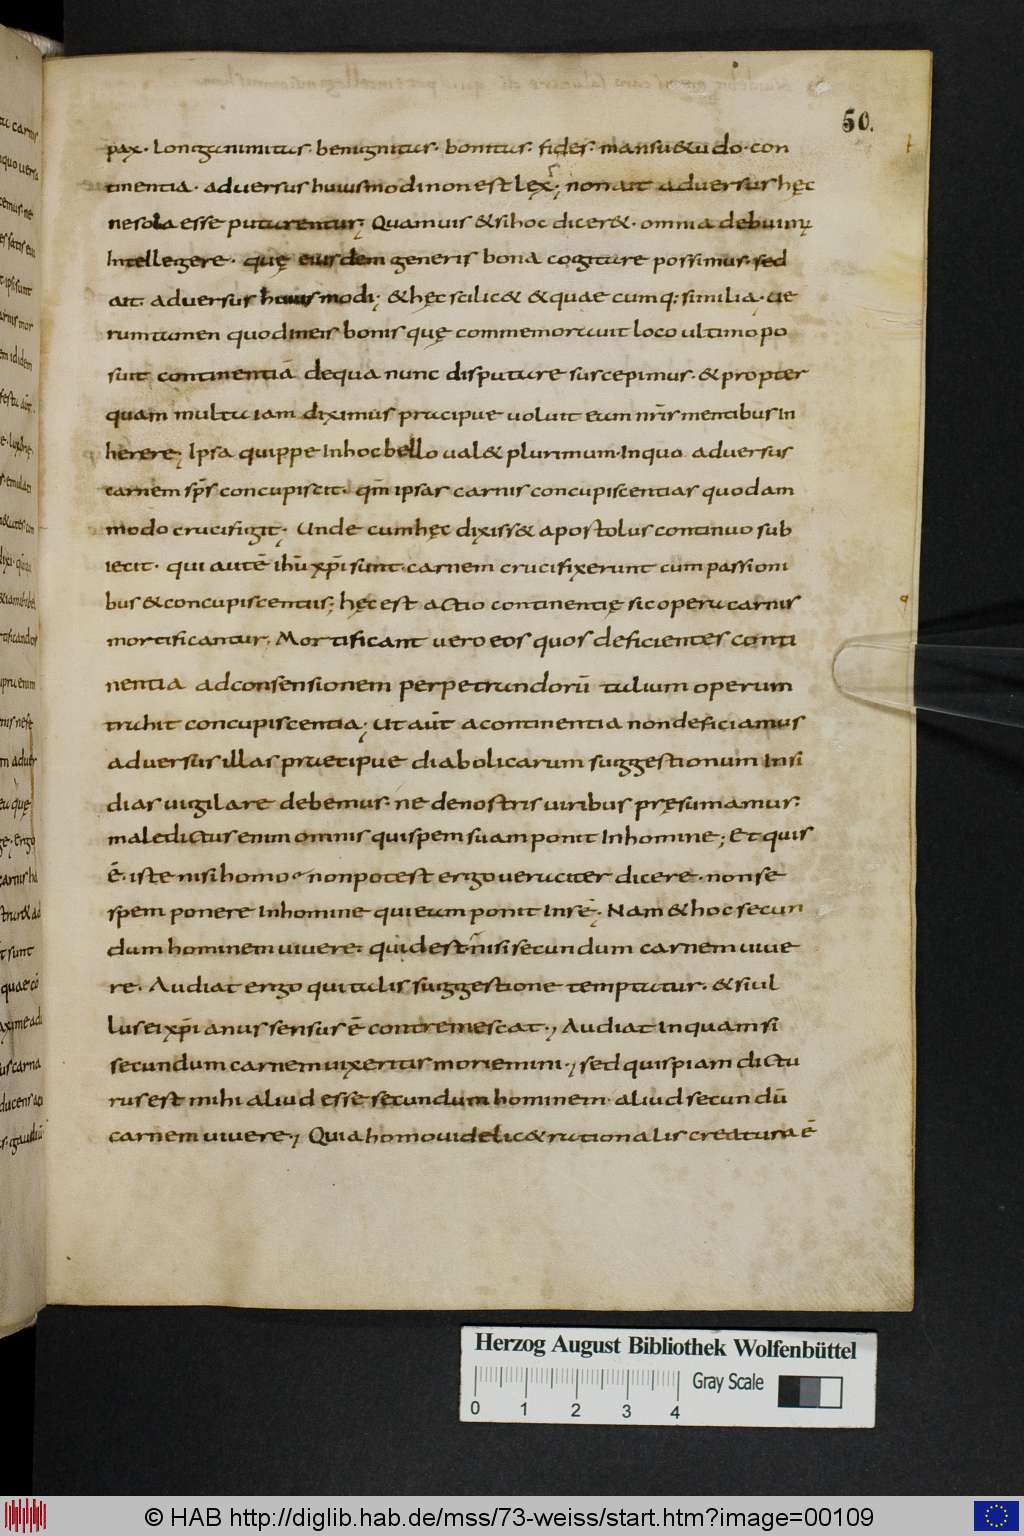 50.
pax. longanimitas. benignitas. bonitas. fides. mansu&udo. con
tinentia. adversus huiusmodi non est lex; non ait adversus hęc
ne sola esse putarentur; Quamuis & si hoc dicer&. omnia debuim;
Intellegere. quę eiusdem generis bona cogitare possimus. sed
ait. adversus huiusmodi; & hęc scilic& & quaecumq; similia. ue
rumtamen quod in eis bonis quę commemorauit loco ultimo po
suit continentiā de qua nunc disputare suscepimus. & propter
quam multa iam diximus praecipue uoluit eam nr̄is mentibus In
herere; Ipsa quippe In hoc bello ual& plurimum. In quo adversus
carnem sp̄s concupiscit. qm̄ ipsas carnis concupiscentias quodam
modo crucifigit; Unde cum hęc dixiss& apostolus continuo sub
iecit. qui autē ihū xp̄i sunt. carnem crucifixerunt cum passioni
bus & concupiscentiis; hęc est actio continentię sic opera carnis
mortificantur. Mortificant uero eos quos deficientes conti
nentia ad consensionem perpetrandorū talium operum
trahit concupiscentia; Ut aūt a continentia non deficiamus
adversus illas praecipue diabolicarum suggestionum Insi
dias uigilare debemus. ne de nostris uiribus pręsumamus.
maledictus enim omnis qui spem suam ponit In homine; Et quis
ē. iste nisi homo. non potest ergo ueraciter dicere. non se
spem ponere In homine qui eam ponit In sē. Nam & hoc secun
dum hominem uiuere. quid est nisi secundum carnem uiue
re. Audiat ergo qui talis suggestione temptatur. & si ul
lus ei xp̄ianus sensus ē contremescat; Audiat Inquam si
secundum carnem uixeritis moriemini; sed quispiam dictu
rus est mihi aliud esse secundum hominem. aliud secundū
carnem uiuere; Quia homo uidelic& rationalis creatura ē
Herzog August Bibliothek Wolfenbüttel
Gray Scale
0 1 2 3 4
© HAB http://diglib.hab.de/mss/73-weiss/start.htm?image=00109